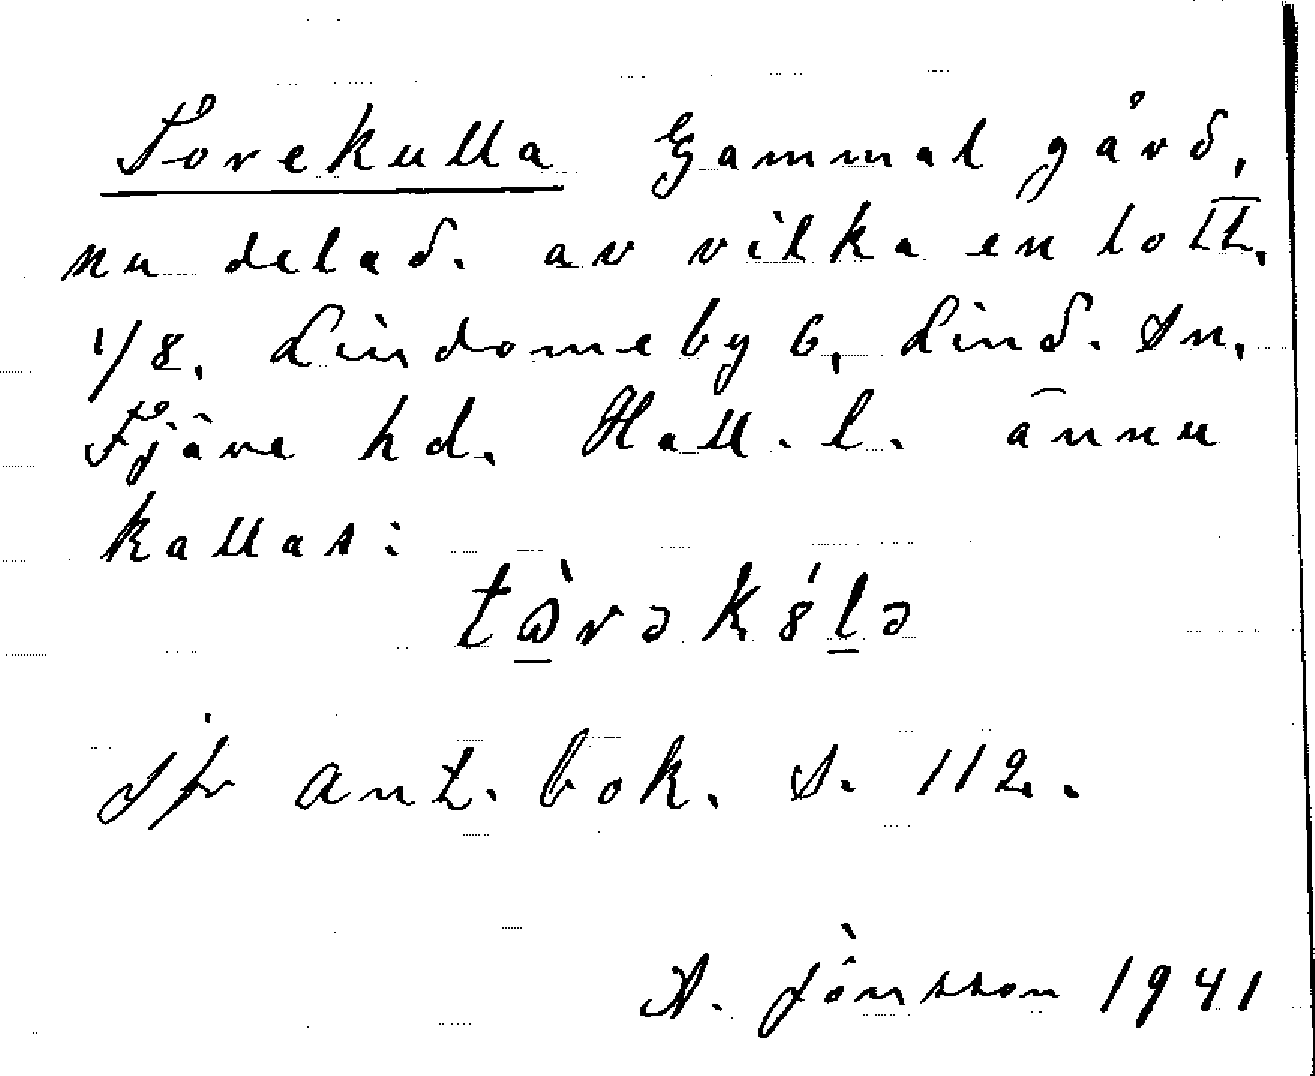 Torekulla Gammal gård,
nu delad. av vilka en lott,
1/8, Lindomeby 6, Lind. sn,
Fjäre hd. Hall. l. ännu
kallas:
tɷ̀rək8́lə
Jfr Ant. bok. s. 112.
A. Jönsson 1941